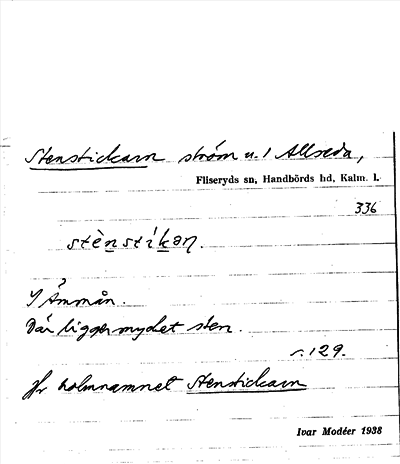 Stenstickarn ström u. 1 Allseda,
Fliseryds sn, Handbörds hd, Kalm. l.
336
stènstikən.
I Ämmån.
Där ligger mycket sten.
s. 129.
Jfr holmnamnet Stenstickarn
Ivar Modéer 1938